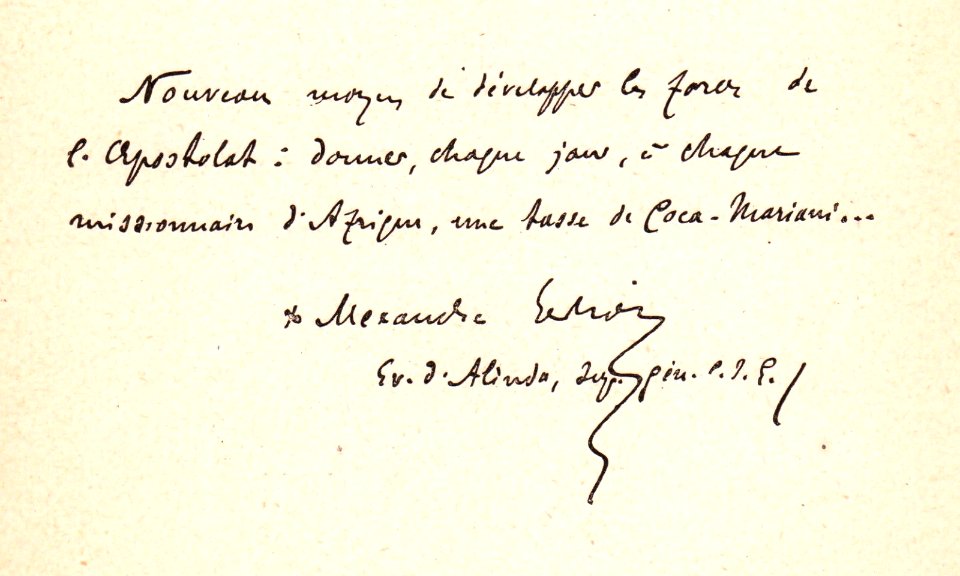 Nouveau moyen de développer les forces de
l'Apostolat : donner, chaque jour, à chaque
missionnaire d'Afrique, une tasse de Coca-Mariani...
Alexandre Le Roy
Ev. d'Alinda, Sup. gén. C. S. E.